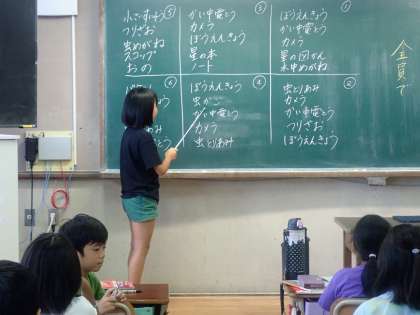 ①
ぼうえんきょう
かい中電とう
カメラ
星の図かん
水中めがね
②
虫とりあみ
カメラ
かい中電とう
つりざお
ぼうえんきょう
③
かい中電とう
カメラ
ぼうえんきょう
星の本
ノート
④
ぼうえんきょう
虫か
かい中電とう
カメラ
虫とりあみ
⑤
つりざお
虫めがね
スコップ
おの
⑥
全員で